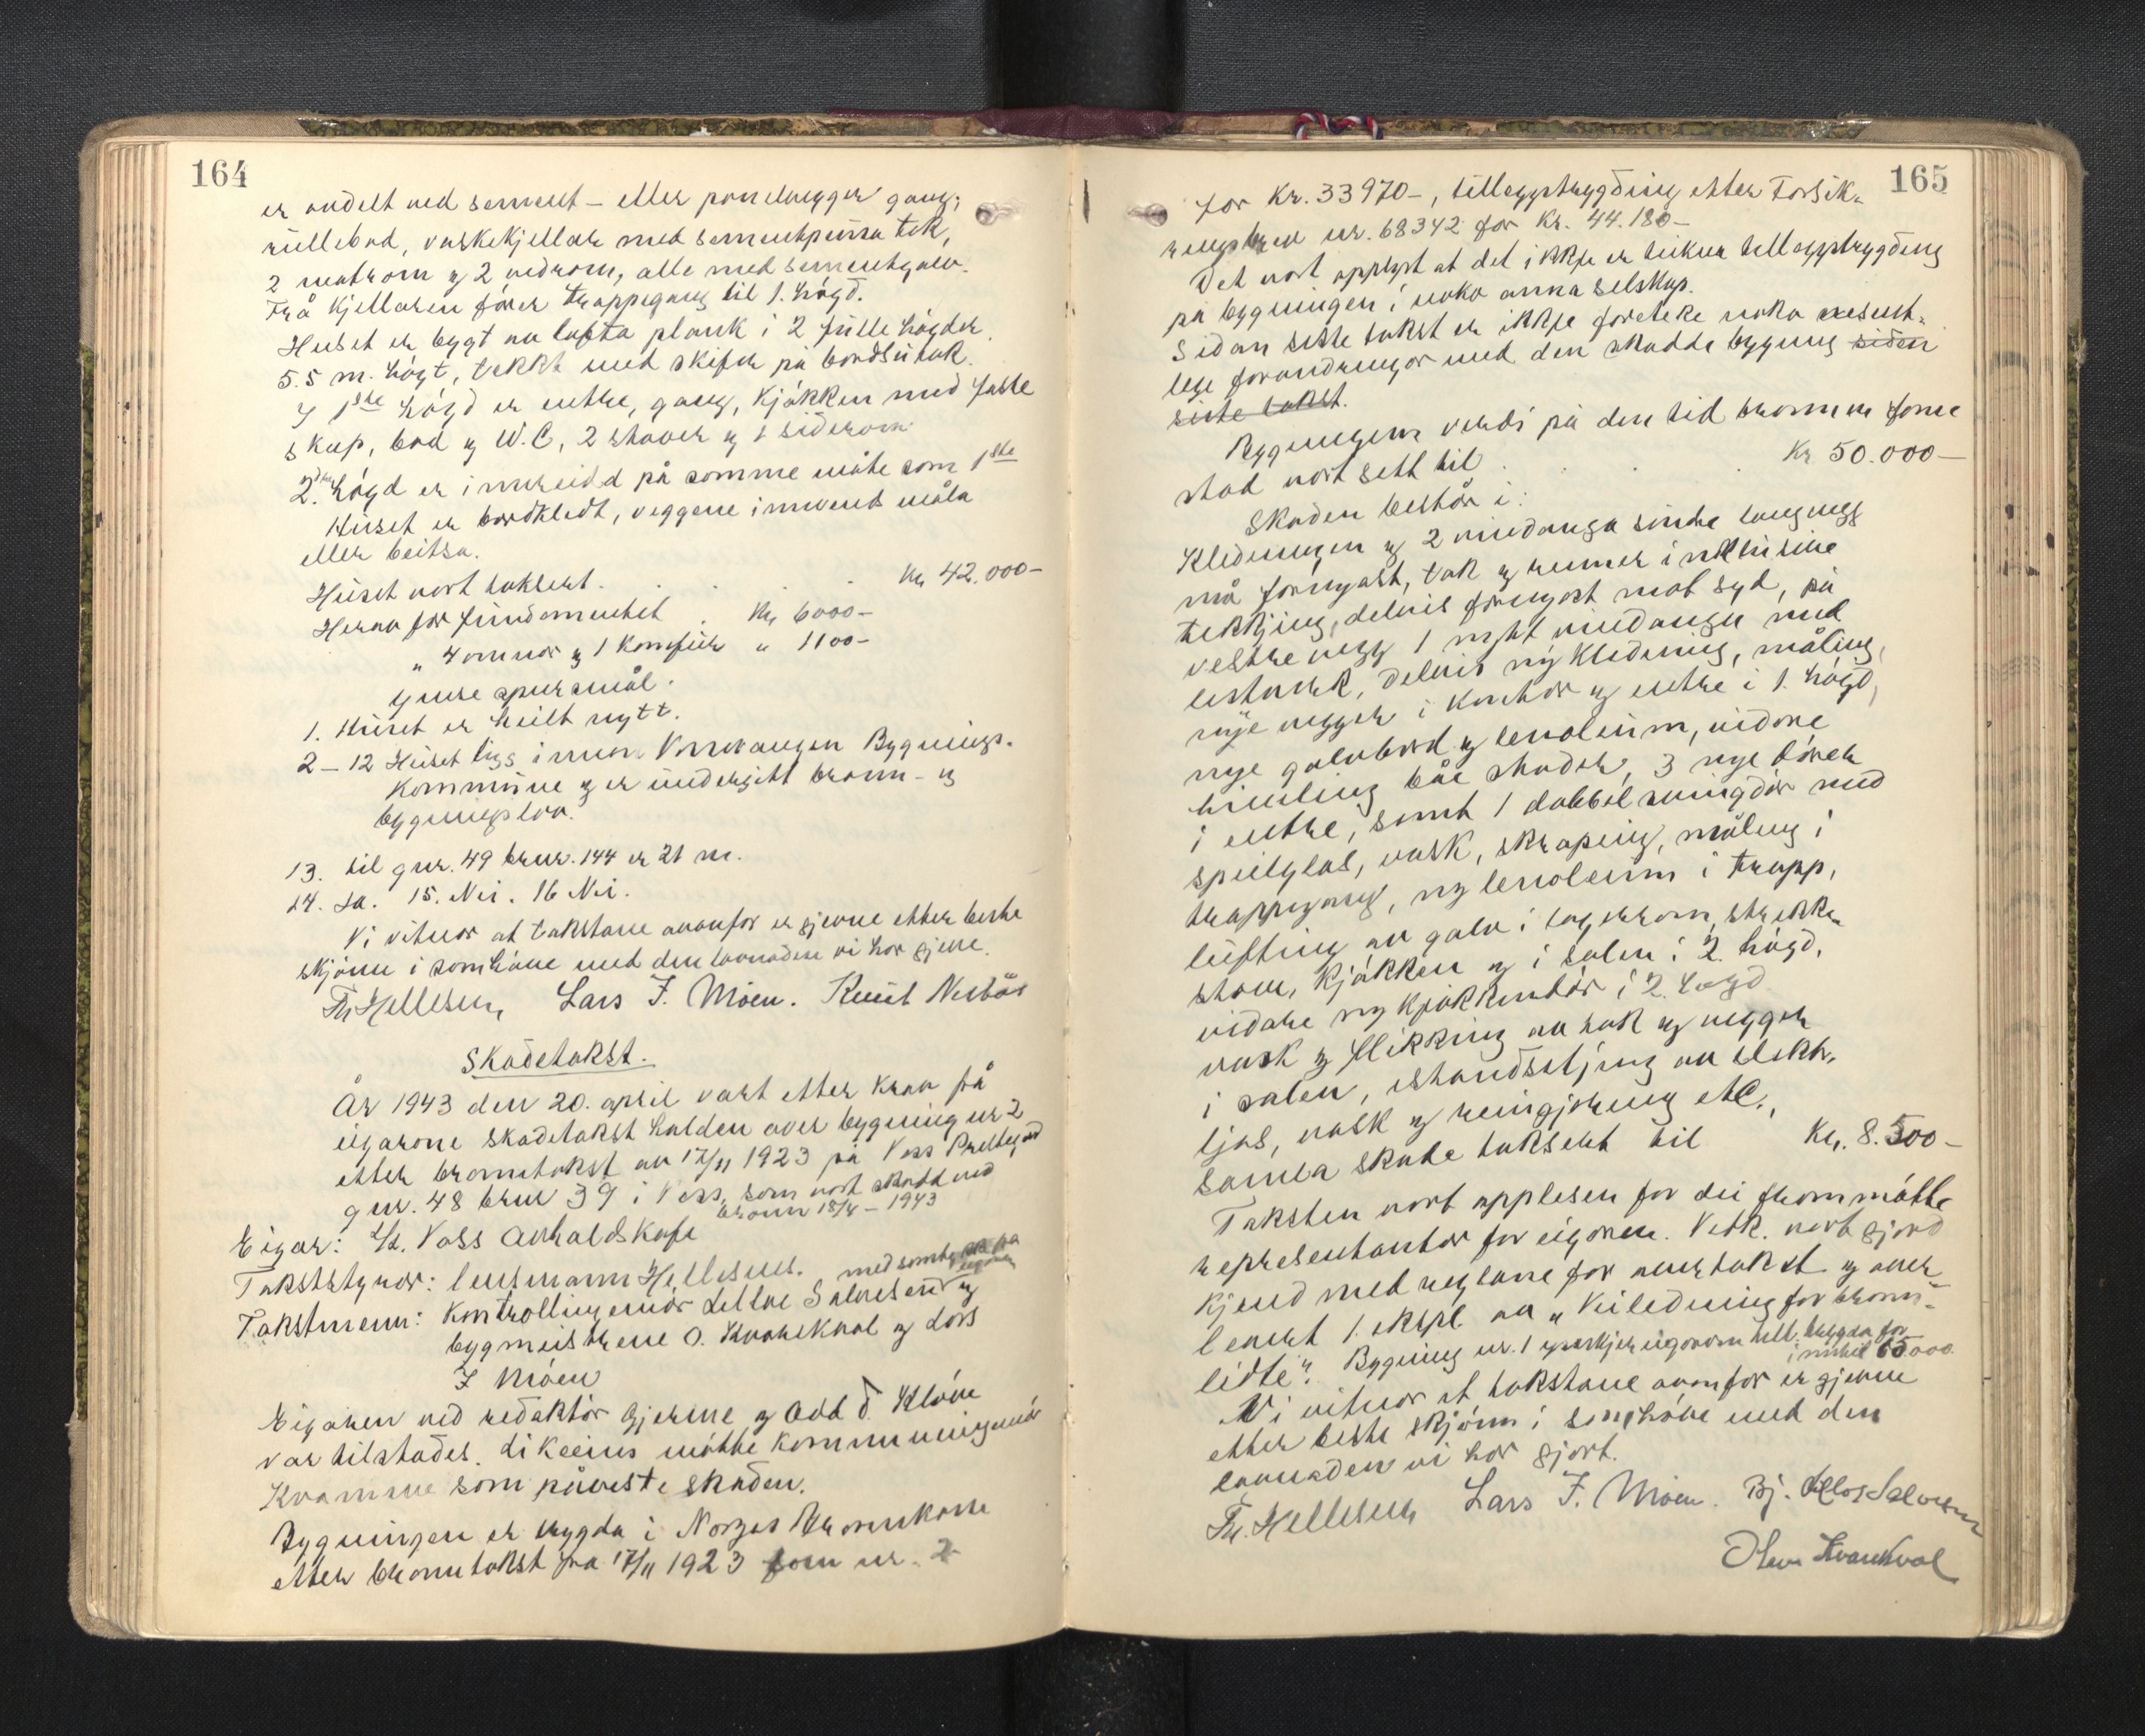 164
er avdelt med sement- eller panelvegger gang,
rullebod, vaskekjellar med sementpussa tak,
2 matrom og 2 vedrom, alle med sementgolv.
Frå kjellaren fører trappegang til 1. høgd.
Huset er bygt av lafta plank i 2 fulle høgder
5.5 m. høgt, tekkt med skifer på bordsutak.
I 1ste høgd er entre, gang, kjøkken med faste
skap, bad og W.C, 2 stover og 1 siderom
2dre høgd er innreidd på somme måte som 1ste
Huset er bordkledt, veggene innvend måla
eller beitsa.
Huset vart taksert . . . . Kr 42.000-
Herav for fundamentet . Kr 6000-
" 4 omnar og 1 komfur " 1100-
Ymse spursmål.
1. Huset er heilt nytt.
2-12 Huset ligg innan Vossevangen Bygnings-
kommune og er undergitt brann- og
bygningslov.
13. til gnr. 49 brnr. 144 er 21 m.
14. Ja. 15. Nei. 16 Nei.
Vi vitnar at takstane ovanfor er gjevne etter beste
skjønn i samhøve med den lovnaden vi har gjeve.
Th Hellesen, Lars J. Møen. Knut Nesbås
Skadetakst.
År 1943 den 20. april vart etter krav på
eigarane skadetakst halden over bygning nr 2
etter branntakst av 17/11 1923 på Voss Prestegard
gnr. 48 brnr 39 i Voss, som vart skadd ved
brann 18/4 - 1943
Eigar: L/L. Voss Avhaldskafe
Takststyrar: lensmann Hellesnes. med samtykke frå eigaren
Takstmenn: Kontrollingeniør Detlov Salvesen og
bygmeistrene O. Kvarekval og Lars
J Møen
Eigaren ved redaktør Gjerme og Odd D. Kløve
var tilstades. Likeeins møtte kommuneingeniør
Kvamme som påviste skaden.
Bygningen er trygda i Norges Brannkasse
etter branntakst fra 17/11 1923 som nr. 2
165
for kr. 33970-, tilleggstrygding etter Forsik-
ringsbrev nr. 68342 for kr. 44.180-
Det vart opplyst at det ikkje er teikna tilleggstrygding
på bygningen i noko anna selskap.
Sidan siste takst er ikkje foreteke noko vesent-
lege forandringar med den skadde bygning siden
siste takst.
Bygningens verdi på den tid brannen fann
stad vart sett til . . . Kr 50.000-
Skaden består i:
Kledningen og 2 vindauga søndre langvegg
må fornyast, tak og renner inklusive
tekkjing, delvis fornyast mot syd, på
vestre vegg 1 nytt vindauga med
listverk, delvis ny kledning, måling,
nye vegger i kontor og entre i 1. høgd,
nye golvbord og lenoleum, vidare
himling båe stader, 3 nye dører
i entre, samt 1 dobbel svingdør med
speilglas, vask, skraping, måling i
trappegang, ny lenoleum i trapp,
lufting av golv i lagerrom, strekk
stove, kjøkken og i salen i 2. høgd,
vidare ny kjøkkendør i 2. høgd
vask og flikking av tak og vegger
i salen, istandsetjing av elektr.
ljos, vask og reingjering etc.,
Samla skade taksert til Kr. 8.500-
Taksten vart opplesen for dei frammøtte
representantar for eigaren. Vedk. vart gjord
kjend med reglane for overtakst og over
levert 1. ekspl. av "Veiledning for brann-
lidte". Bygning nr. 1
i inntil 65000.
Vi vitnar at takstane ovanfor er gjevne
etter beste skjønn i samhøve med den
lovnaden vi har gjort.
Th. Hellesen Lars J. Møen. Bj. Detlof Salvesen
Olav Kvarekval